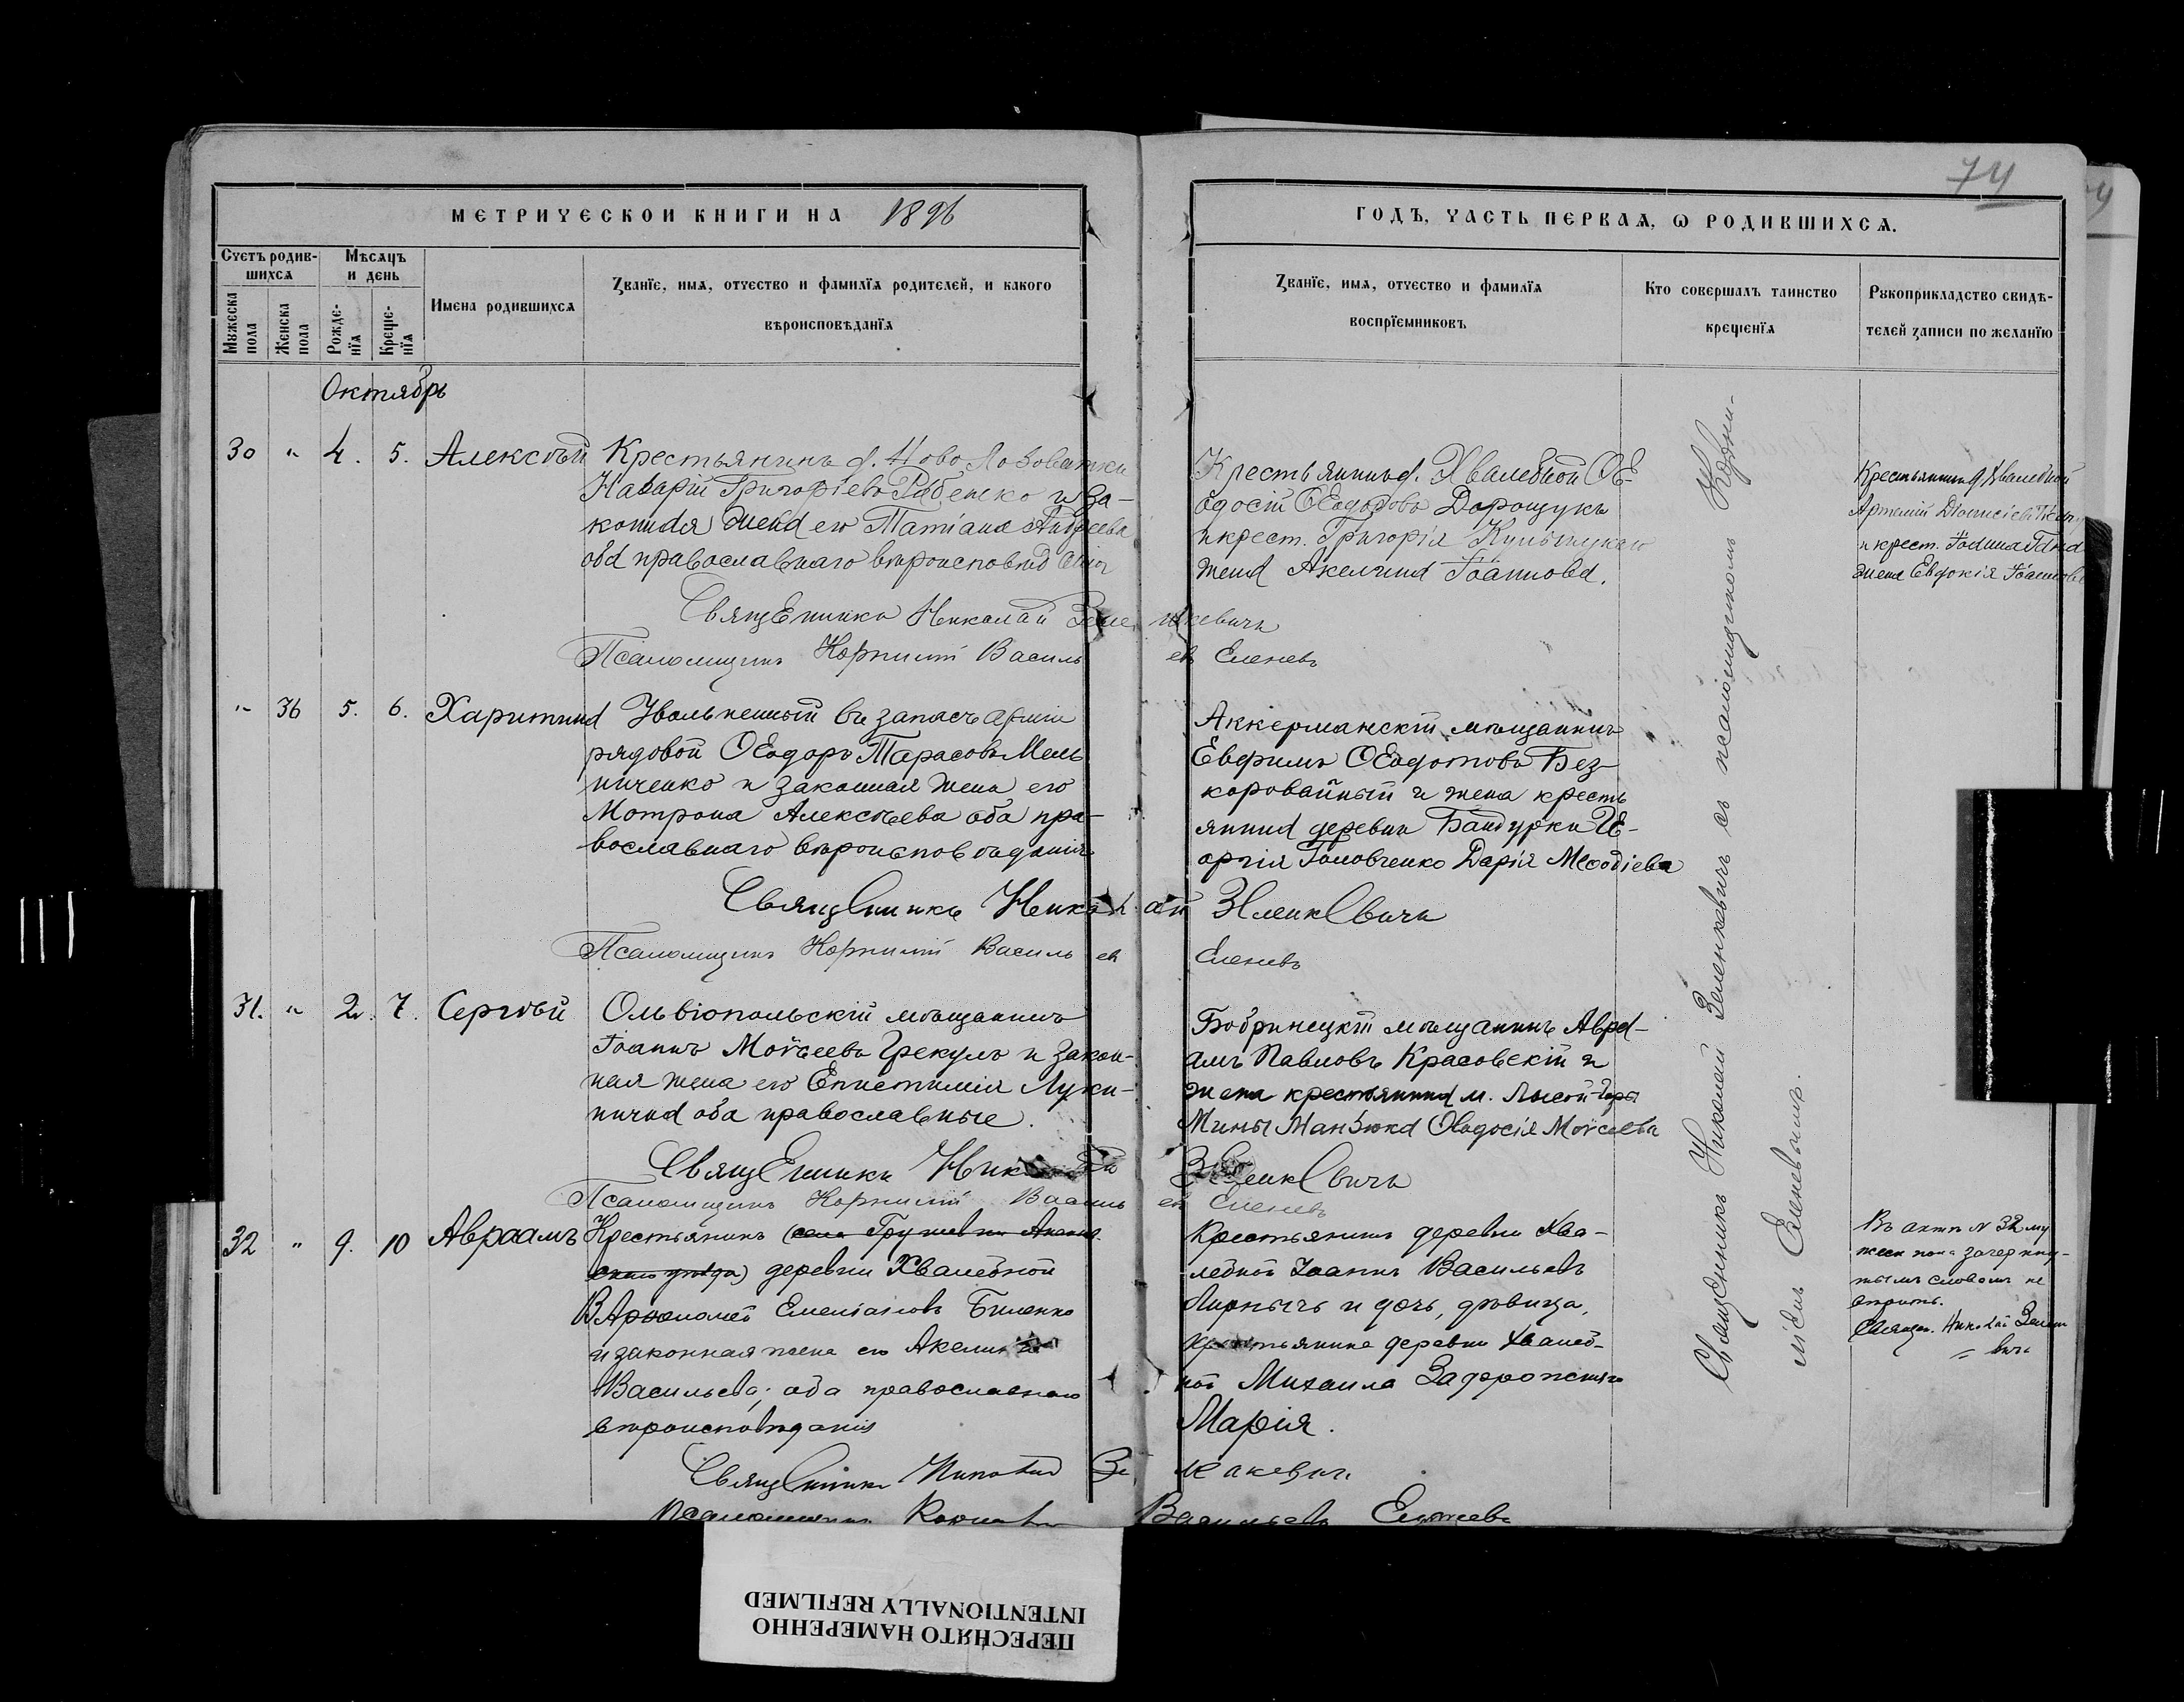 74
МЕТРИЧЕСКОЙ КНИГИ НА 1896
ГОДЪ, ЧАСТЬ ПЕРВАѦ, Ѡ РОДИВШИХСѦ.
Счетъ родив-
шихсѧ
Мꙋжеска пола
Женска пола
Мѣсѧцъ
и день
Рожде-
нїѧ
Креще-
нїѧ
Имена родившихсѧ
Званїе, имѧ, отчество и фамилїѧ родителей, и какого
вѣроисповѣданїѧ
Званїе, имѧ, отчество и фамилїѧ
воспрїемниковъ
Кто совершалъ таинство
крещенїѧ
Рꙋкоприкладство свидѣ-
телей записи по желанїю
Октябрь
30 " 4. 5. Алексѣй
Крестьянинъ д. Ново Лобоватки
Назарій Григоріевъ и за-
конная жена его Татіана Андреева
оба православнаго вѣроисповѣд
Крестьянинъ д. Хвалебной Ѳе-
одосій Ѳеодоровъ Дорощукъ
и крест. Григорія
жена Акелина Іоаннова.
Крестьянинъ д. Хвалебной
Артемій Діонисіевъ
и крест. Іоанна
жена Евдокія Іоаннова
Священникъ Николай Зеленкевичъ
Псаломщикъ Корнилій Васильевъ Еленевъ
" 36 5. 6. Харитина
Уволенный въ запасъ арміи
рядовой Ѳеодоръ Тарасовъ Мель
ниченко и законная жена его
Мотрона Алексѣева оба пра-
вославнаго вѣроисповѣданія
Аккерманскій мѣщанинъ
Евфимъ Ѳедотовъ Без-
коровайный и жена кресть
янина деревни Бандурки Ге-
оргія Головченко Дарія Меѳодіева
Священникъ Николай Зеленкевичъ
Псаломщикъ Корнилій Васильевъ Еленевъ
31. " 2. 7. Сергѣй
Ольвіопольскій мѣщанинъ
Іоаннъ Моѵсеевъ Грекулъ и закон-
ная жена его Епистимія Луки-
нична оба православные.
Бобринецкій мѣщанинъ Авра-
амъ Павловъ Красовскій и
жена крестьянина м. Лысой-Горы
Мины Манзюка Ѳеодосія Моѵсеева
Священникъ Николай Зеленкевичъ
Псаломщикъ Корнилій Васильевъ Еленевъ
32 " 9. 10 Авраамъ
Крестьянинъ (села Грушевки Анань
скаго уѣзда) деревни Хвалебной
Варѳоломей Емеліановъ Биленко
и законная жена его Акелина
Васильева; оба православнаго
вѣроисповѣданія
Крестьянинъ деревни Хва-
лебной Іоаннъ Васильевъ
и дочь, дѣвица,
крестьянина деревни Хвалеб-
ной Михаила Задорожняго
Марія.
Въ актѣ N 32 му
жеск пола зачеркну-
тымъ словамъ не
вѣрить.
Священ. Николай Зеленке
= вичъ
Священникъ Николай Зеленкевичъ
Псаломщикъ Корнилій Васильевъ Еленевъ
Священникъ Николай Зеленкевичъ съ псаломщикомъ Корни-
ліемъ Еленевымъ.
ПЕРЕСНЯТО НАМЕРЕННО
INTENTIONALLY REFILMED